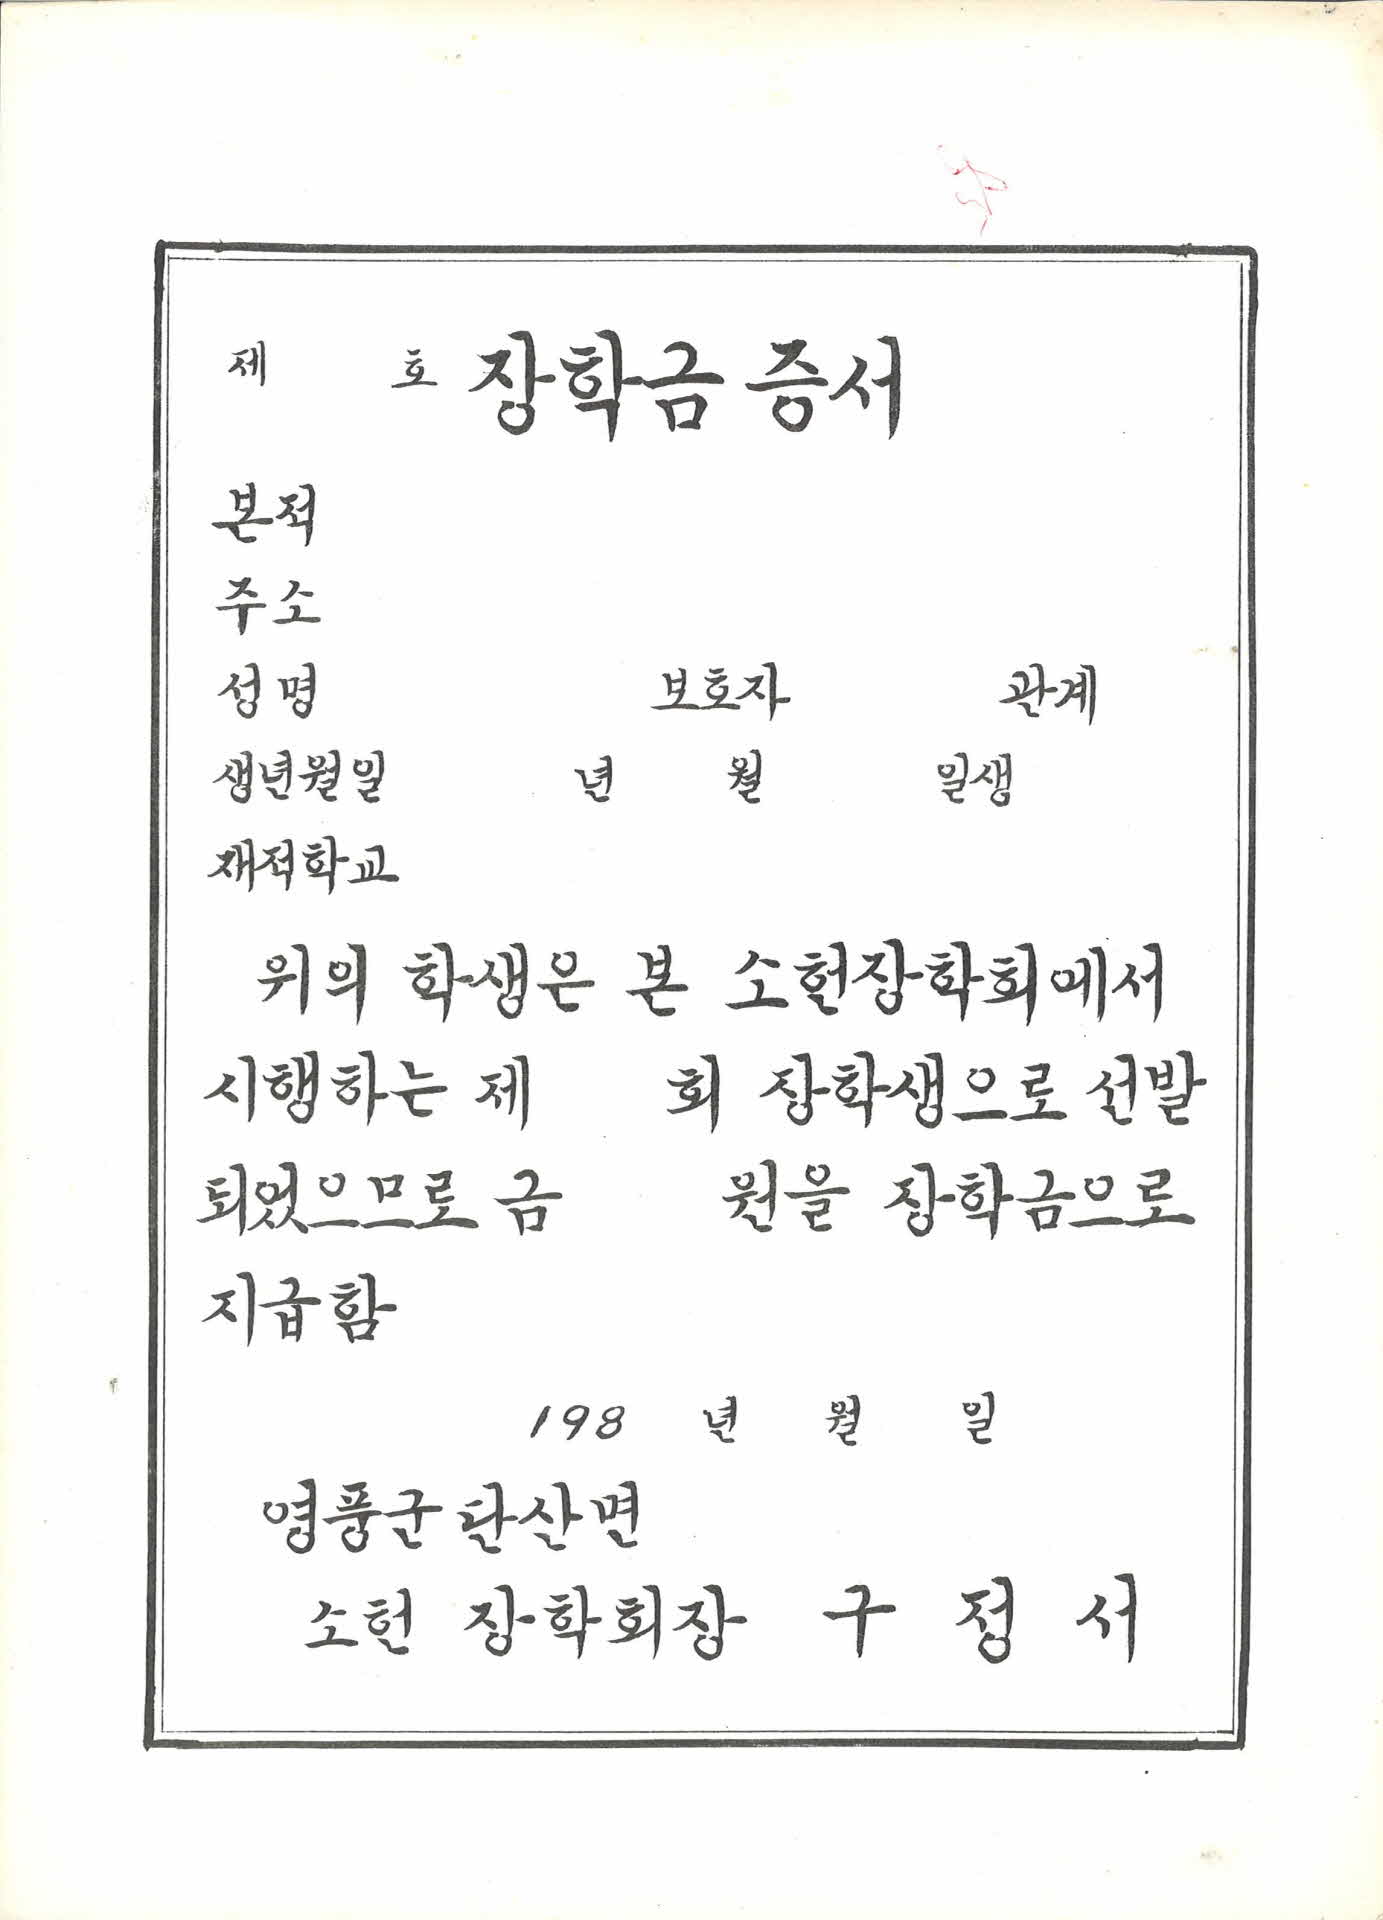 제 호 장학금 증서
본적
주소
성명 보호자 관계
생년월일 년 월 일생
재적학교
위의 학생은 본 소헌장학회에서
시행하는 제 회 장학생으로 선발
되었으므로 금 원을 장학금으로
지급함
198 년 월 일
영풍군 단산면
소헌 장학회장 구 정 서